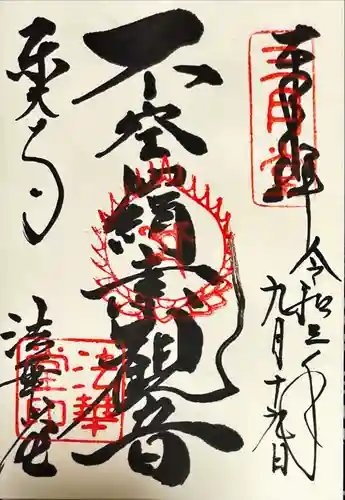 奉拝
三月堂
令和三年
九月十九日
不空羂索観音
東大寺
法華堂
法華
堂印